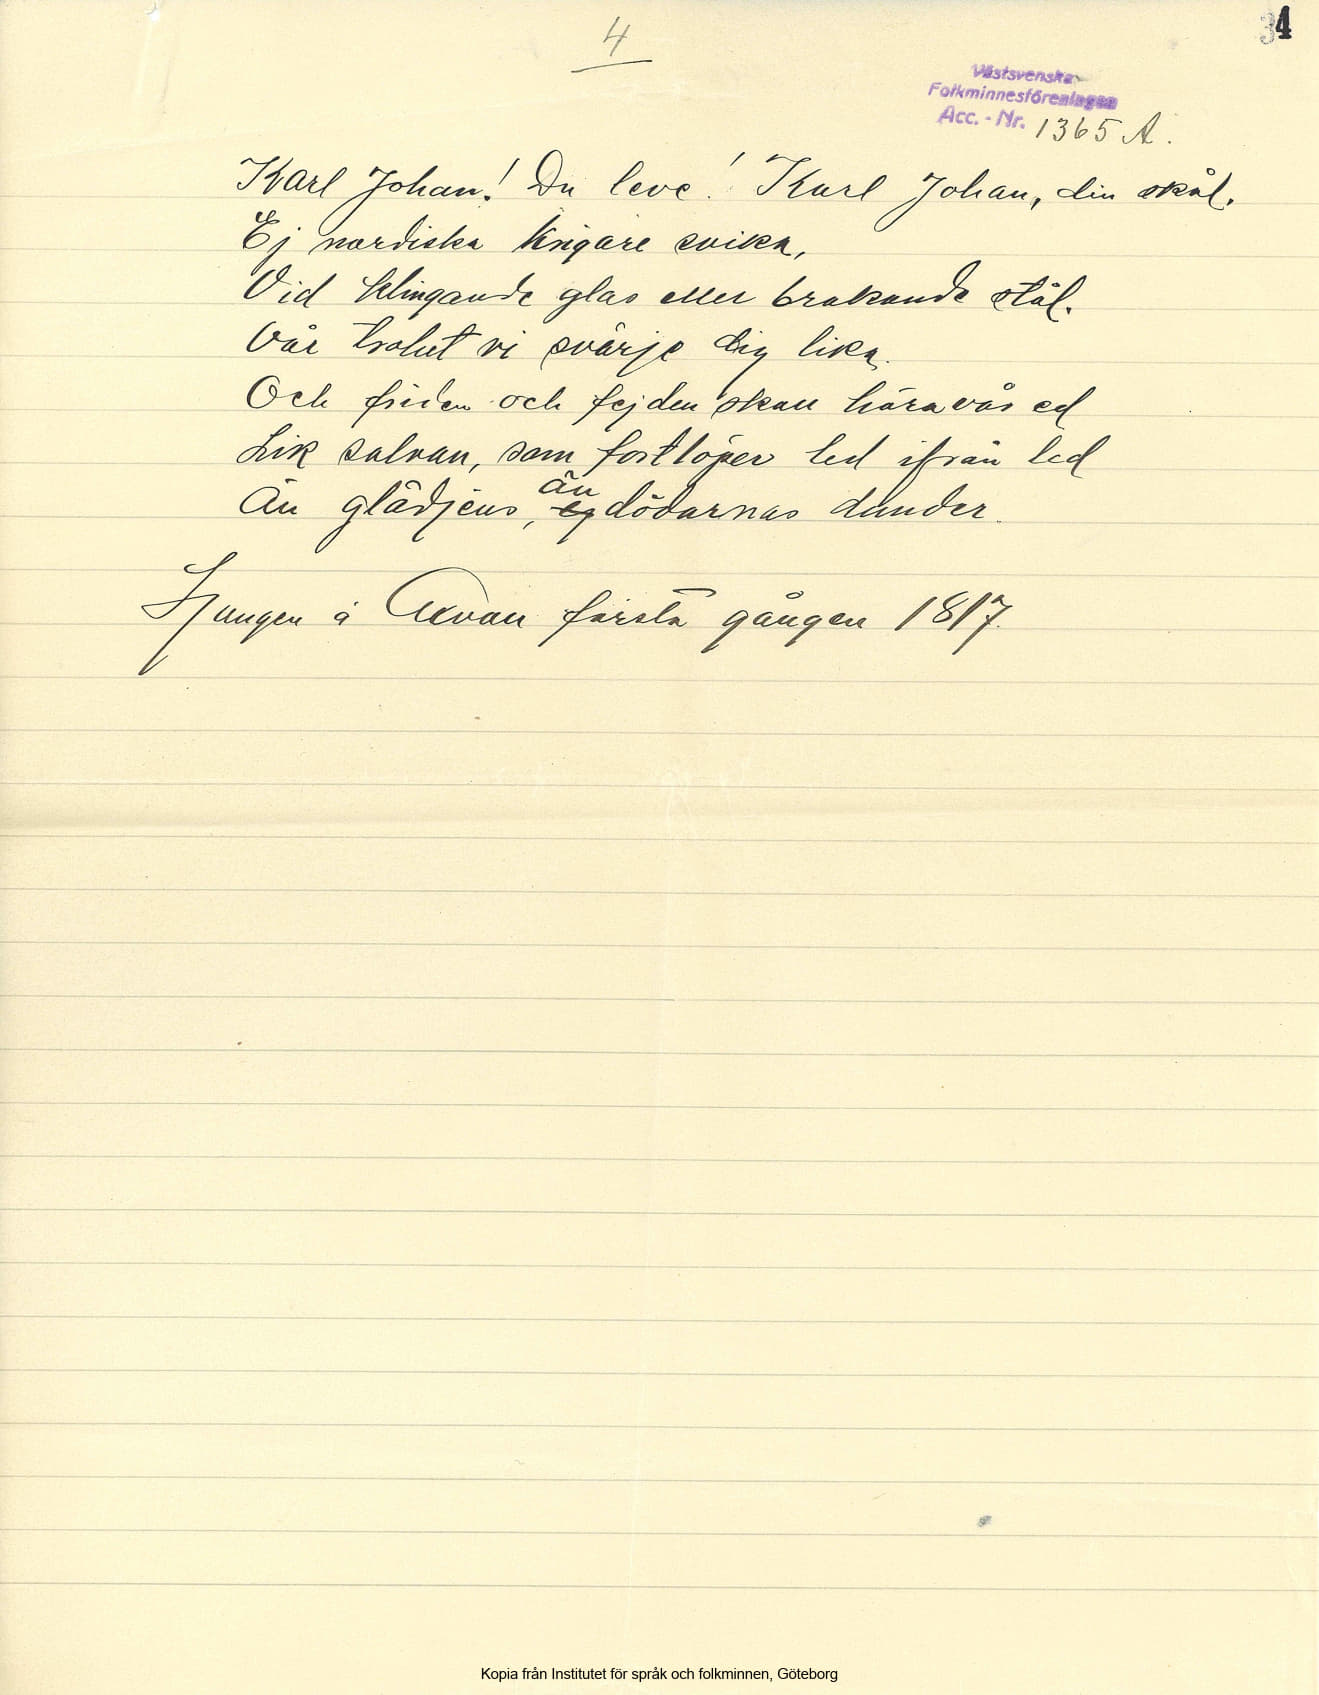 4
34
Västsvenska
Folkminnesföreningen
Acc.-Nr. 1365 A.
Karl Johan! Du leve! Karl Johan, din skål.
Ej nordiska krigare svika,
Vid klingande glas eller brakande stål.
Vår trohet vi svärje dig lika.
Och friden och fejden skall höra vår ed
Lik salvan, som fortlöper led ifrån led
Än glädjens, än dödarnas dunder.
Sjungen å Axvall första gången 1817.
Kopia från Institutet för språk och folkminnen, Göteborg